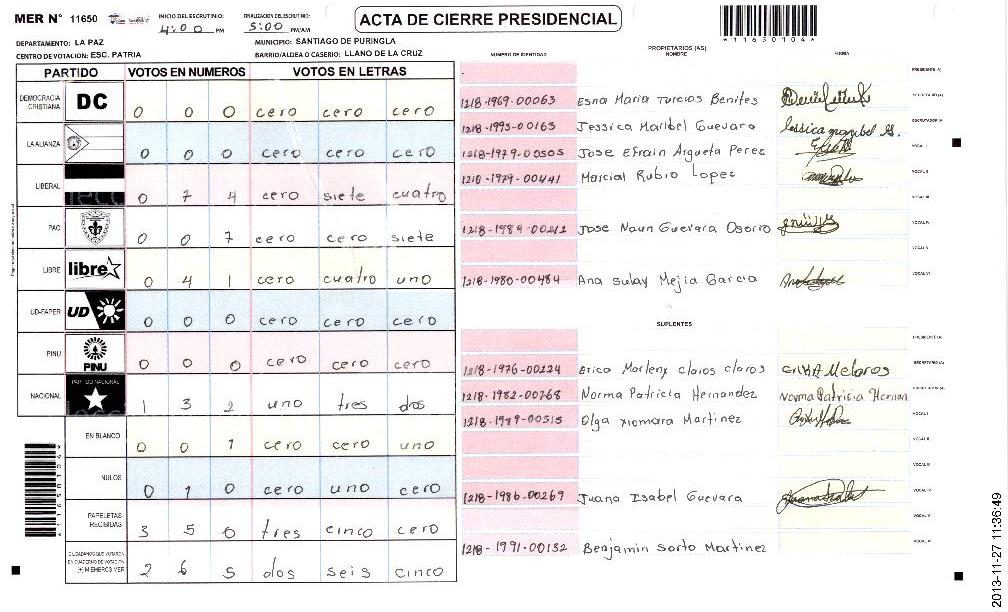 MER N° 11650
INICIO DEL ESCRUTINIO: 4:00 PM
FINALIZACION DEL ESCRUTINIO: 5:00 PM/AM
ACTA DE CIERRE PRESIDENCIAL
*11650104*
DEPARTAMENTO: LA PAZ
MUNICIPIO: SANTIAGO DE PURINGLA
CENTRO DE VOTACION: ESC. PATRIA
BARRIO/ALDEA O CASERIO: LLANO DE LA CRUZ
PARTIDO VOTOS EN NUMEROS VOTOS EN LETRAS
DEMOCRACIA CRISTIANA DC 0 0 0 cero cero cero
LA ALIANZA 0 0 0 cero cero cero
LIBERAL 0 7 4 cero siete cuatro
PAC 0 0 7 cero cero siete
LIBRE libre 0 4 1 cero cuatro uno
UD-FAPER UD 0 0 0 cero cero cero
PINU PINU 0 0 0 cero cero cero
NACIONAL PARTIDO NACIONAL 1 3 2 uno tres dos
EN BLANCO 0 0 1 cero cero uno
NULOS 0 1 0 cero uno cero
PAPELETAS RECIBIDAS 3 5 0 tres cinco cero
CIUDADANOS QUE VOTARON EN CUADERNO DE VOTACION (+) MIEMBROS MER 2 6 5 dos seis cinco
NUMERO DE IDENTIDAD PROPIETARIOS (AS) NOMBRE FIRMA
PRESIDENTE (A)
1218-1969-00063 Esna Maria Turcios Benites SECRETARIO (A)
1218-1995-00163 Jessica Maribel Guevara ESCRUTADOR (A)
1218-1979-00505 Jose Efrain Argueta Perez VOCAL I
1218-1979-00441 Marcial Rubio Lopez VOCAL II
VOCAL III
1218-1984-00212 Jose Naun Guevara Osorio VOCAL IV
VOCAL V
1218-1980-00484 Ana Sulay Mejia Garcia VOCAL VI
SUPLENTES
PRESIDENTE (A)
1218-1976-00224 Erica Marleny claros claros SECRETARIO (A)
1218-1982-00768 Norma Patricia Hernandez Norma Patricia Hernan
1218-1989-00515 Olga xiomara Martinez VOCAL I
VOCAL II
VOCAL III
1218-1986-00269 Juana Isabel Guevara VOCAL IV
VOCAL V
1218-1991-00132 Benjamin Sorto Martinez VOCAL VI
2013-11-27 11:36:49